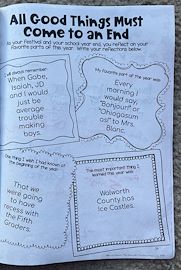 All Good Things Must
Come to an End
As your festival and your school year end, you reflect on your
favorite parts of this year. Write your reflections below.
I will always remember
When Gabe,
Isaiah, JD
and I would
just be
average
trouble
making
boys.
My favorite part of the year was
Every
morning I
would say,
"Bonjour" or
"Ohiogasum
as" to Mrs.
Blanc.
One thing I wish I had known at
the beginning of the year
That we
were going
to have
recess with
the Fifth
Graders.
The most important thing I
learned this year was
Walworth
County has
Ice Castles.